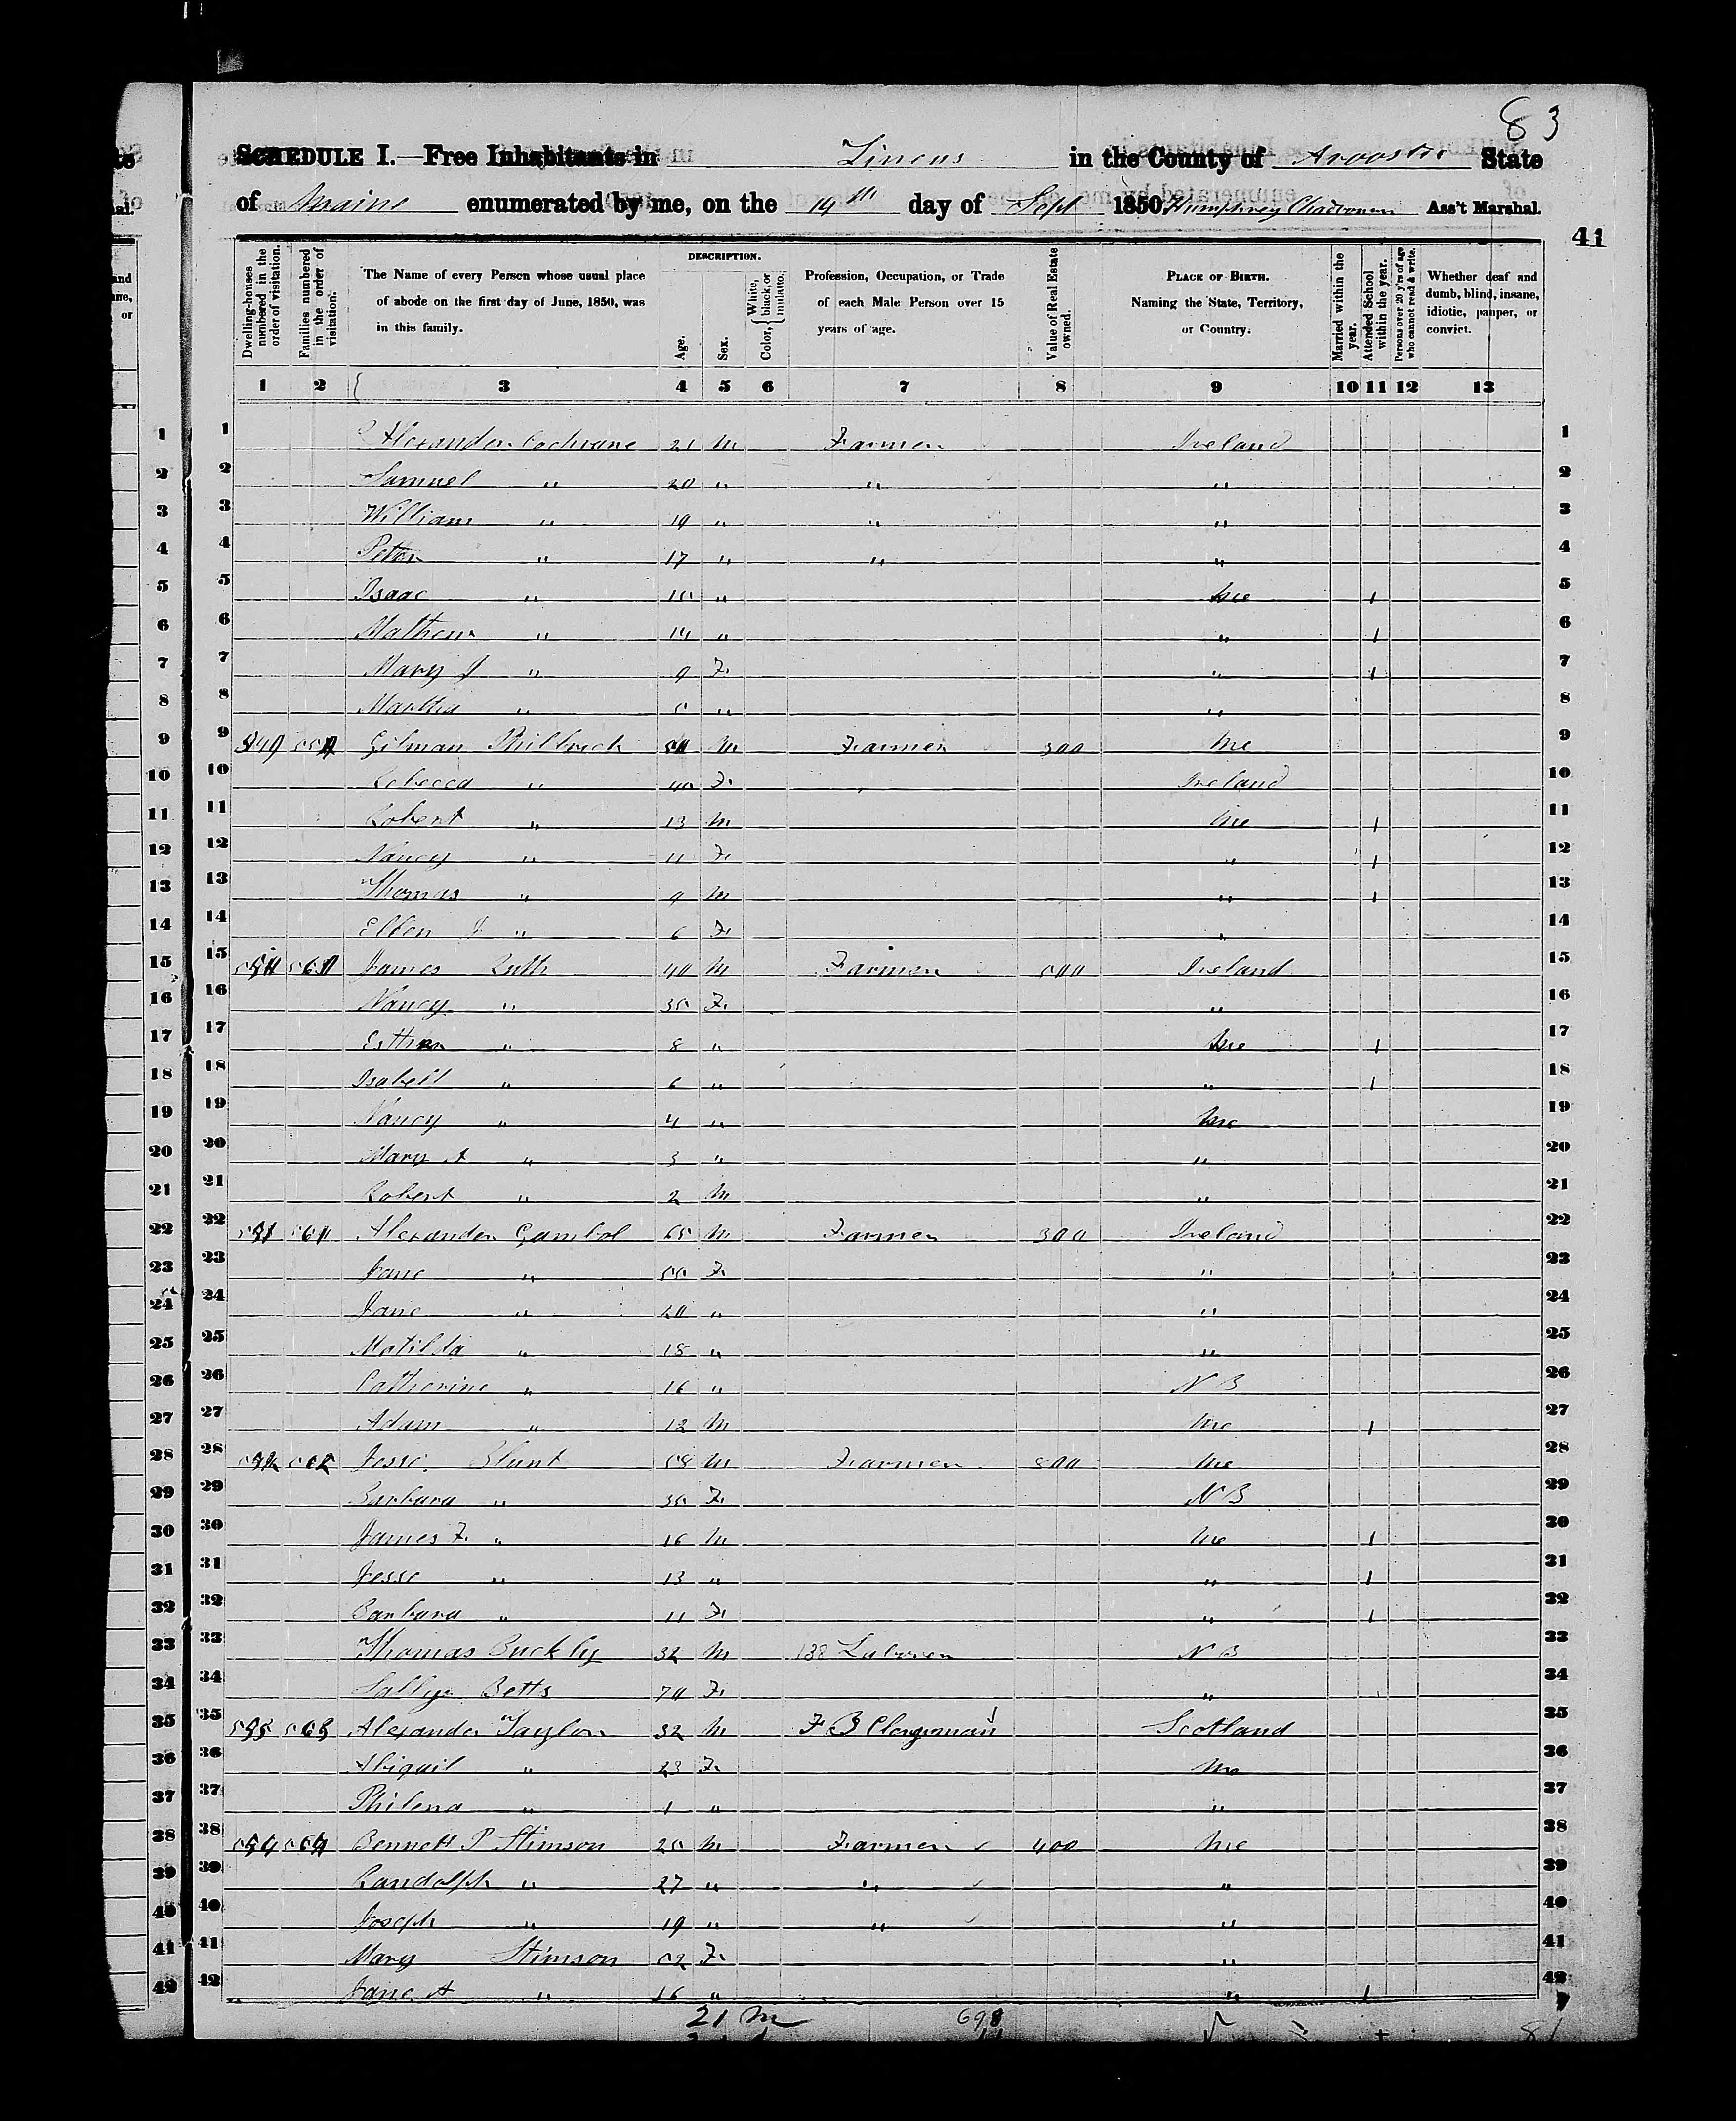 83
SCHEDULE I.—Free Inhabitants in Lineus in the County of Aroostic State
of Maine enumerated by me, on the 14th day of Sept 1850. Humphrey Chadbourn Ass't Marshal.
41
Dwelling-houses numbered in the order of visitation.
Families numbered in the order of visitation.
The Name of every Person whose usual place of abode on the first day of June, 1850, was in this family.
DESCRIPTION.
Age.
Sex.
Color, { White, black, or mulatto.
Profession, Occupation, or Trade of each Male Person over 15 years of age.
Value of Real Estate owned.
PLACE OF BIRTH. Naming the State, Territory, or Country.
Married within the year.
Attended School within the year.
Persons over 20 y'rs of age who cannot read & write.
Whether deaf and dumb, blind, insane, idiotic, pauper, or convict.
1 2 3 4 5 6 7 8 9 10 11 12 13
1 Alexander Cochrane 21 M Farmer Ireland 1
2 Samuel " 20 " " " 2
3 William " 19 " " " 3
4 Peter " 17 " " " 4
5 Isaac " " Me 1 5
6 Mathew " 14 " " 1 6
7 Mary J " 9 F " 1 7
8 Martha " 5 " " 8
9 Gilman Philbrick 50 M Farmer 300 Me 9
10 Rebecca " F Ireland 10
11 Robert " 13 M Me 1 11
12 Nancy " 11 F " 1 12
13 Thomas " 9 M " 1 13
14 Ellen J " 6 F " 14
15 James Ruth 40 M Farmer 500 Ireland 15
16 Nancy " 35 F " 16
17 Esther " 8 " Me 1 17
18 Isabell " 6 " " 1 18
19 Nancy " 4 " Me 19
20 Mary A " 3 " " 20
21 Robert " 2 M " 21
22 551 561 Alexander Gambol 65 M Farmer 300 Ireland 22
23 Jane " 55 F " 23
24 Jane " 20 " " 24
25 Matilda " 18 " " 25
26 Catherine " 16 " N B 26
27 Adam " 12 M Me 1 27
28 552 562 Jesse Blunt 58 M Farmer 800 Me 28
29 Barbara " 35 F N B 29
30 James F. " 16 M Me 1 30
31 Jesse " 13 " " 1 31
32 Barbara " 11 F " 1 32
33 Thomas Buckley 32 M 138 Laborer N B 33
34 Sallya Betts 70 F " 34
35 553 563 Alexander Taylor 32 M F B Clergyman Scotland 35
36 Abigail " 23 F Me 36
37 Philena " 1 " " 37
38 554 564 Bennett P Stimson 25 M Farmer 400 Me 38
39 Randolph " 27 " " " 39
40 Joseph " 19 " " " 40
41 Mary Stimson 52 F " 41
42 Jane A " 16 " " 1 42
21 M